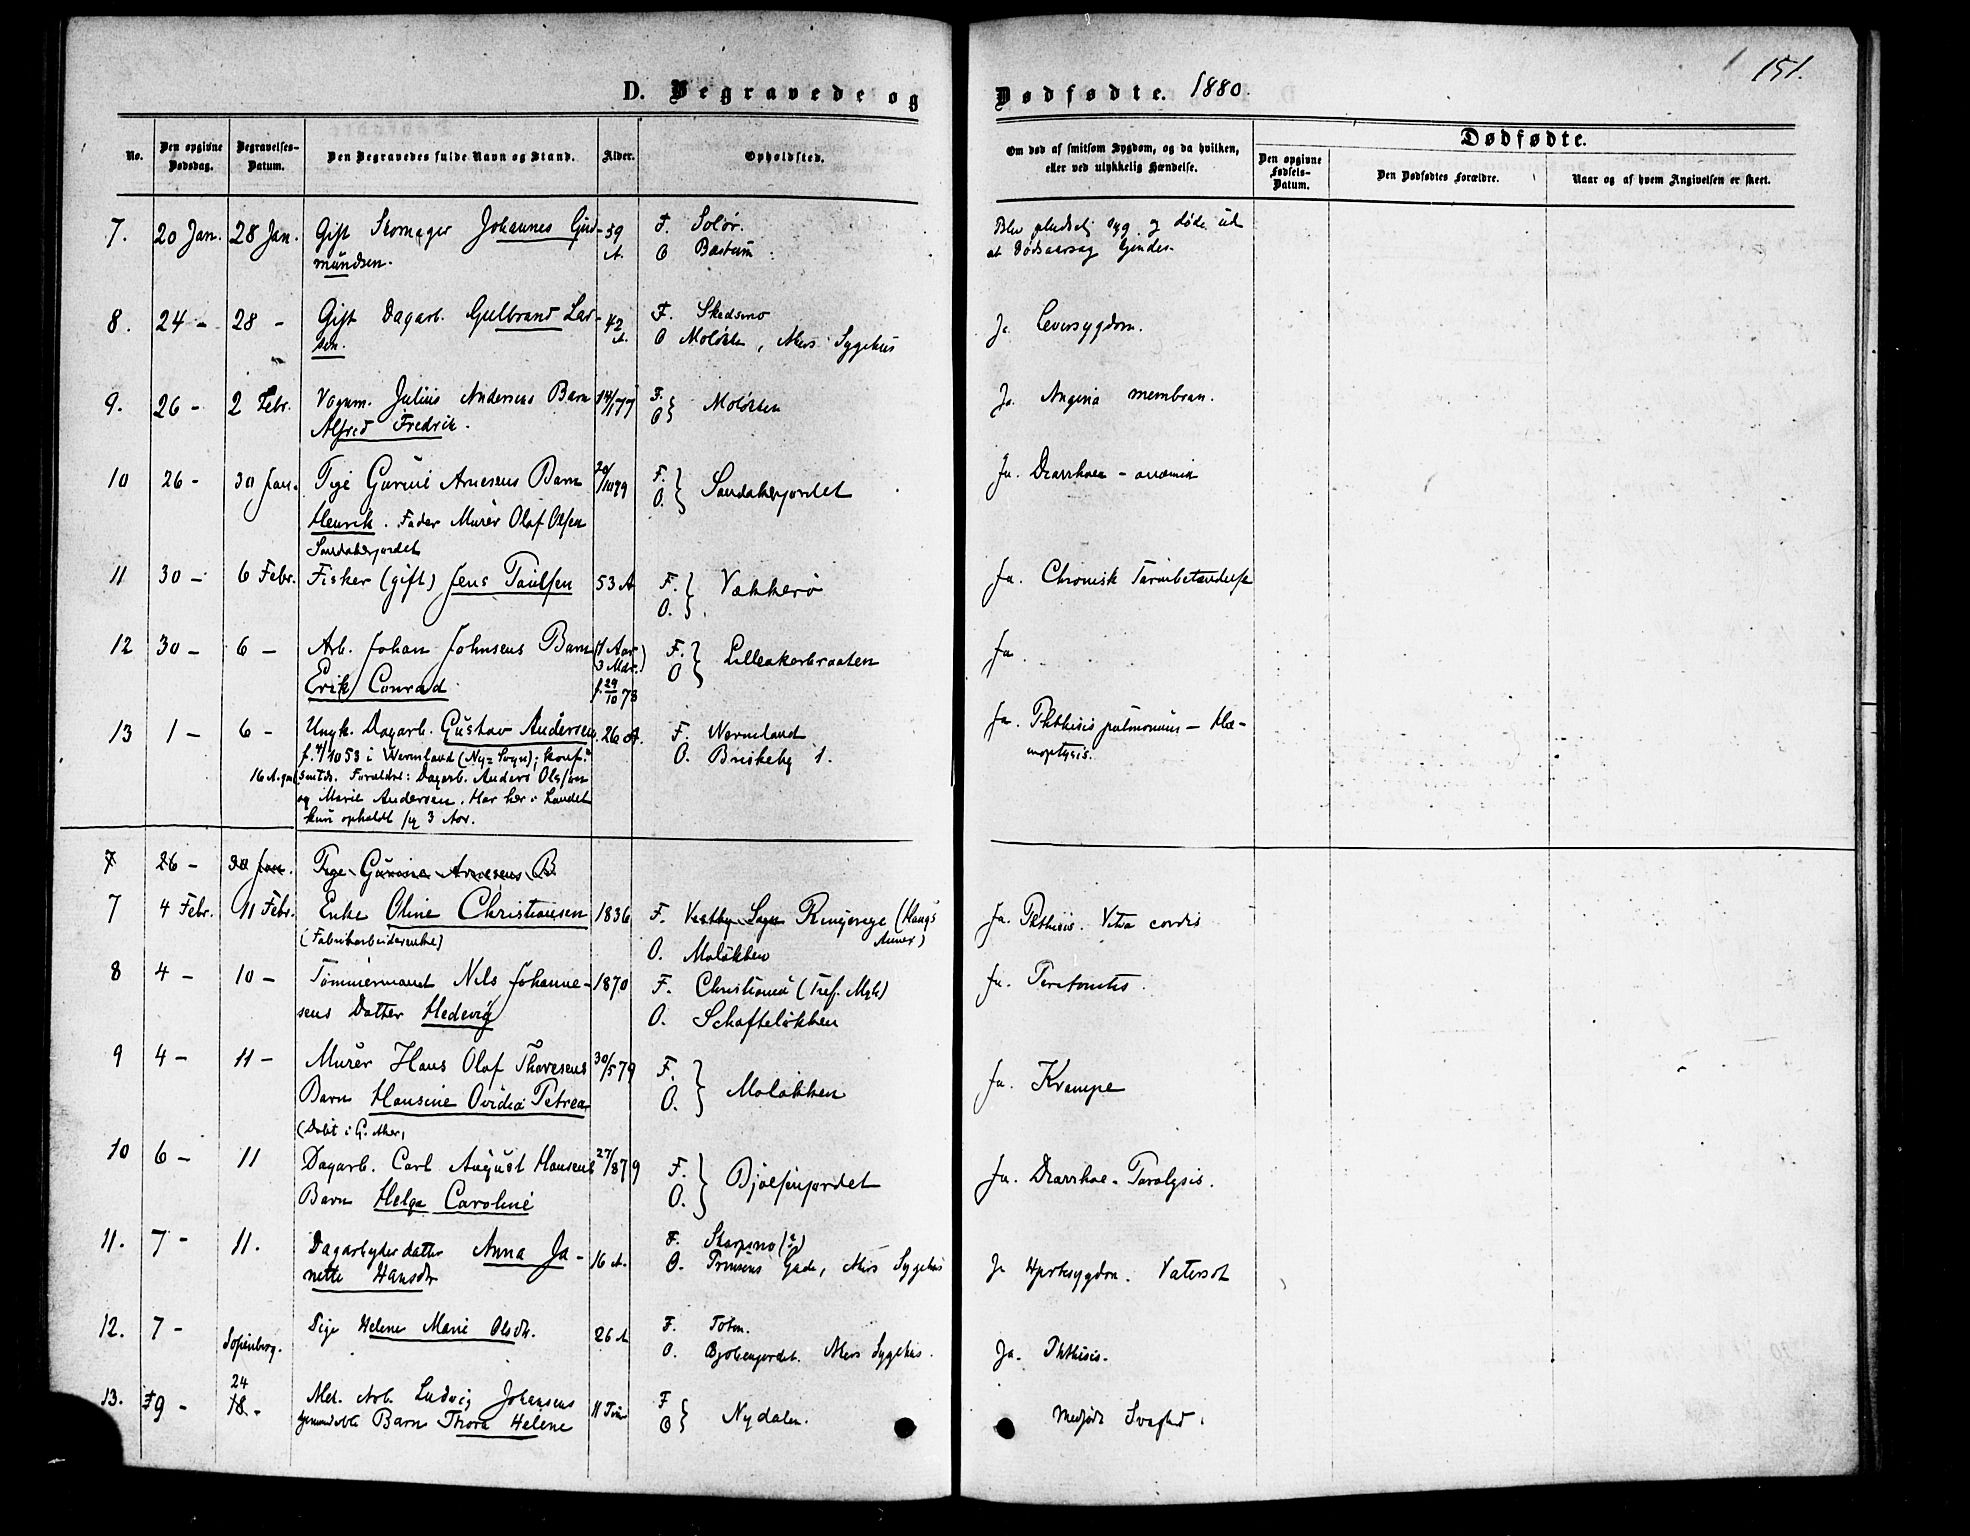 151.
D. Begravede og Dødfødte. 1880.
No.
Den opgivne Dødsdag.
Begravelses-Datum.
Den Begravedes fulde Navn og Stand.
Alder.
Opholdsted.
Om død af smitsom Sygdom, og da hvilken,
eller ved ulykkelig Hændelse.
Dødfødte.
Den opgivne Fødsels-Datum.
Den Dødfødtes Forældre.
Naar og af hvem Angivelsen er skeet.
7. 20 Jan. 28 Jan. Gift Skomager Johannes Gud- 59 F. Solør. Blev pludselig syg og døde
mundsen. A. O Bæstum
8. 24 - 28 - Gift Dagarb. Gulbrand Lar- 42 F. Skedsmo Ja Leversygdom.
sen. A. O Moløkken, Akers Sygehus
9. 26 - 2 Febr. Vognm. Julius Andersens Barn 14/1 77 F. O } Moløkken Ja. Angina membran.
Alfred Fredrik.
10 26 - 30 Jan. Pige Gurine Arnesens Barn 20/10 79 F. O. } Sandakerjordet Ja. Diarrhoea - anæmia
Henrik. Fader Murer Olaf Olsen
Sandakerjordet
11 30 - 6 Febr. Fisker (gift) Jens Paulsen 53 A F. O. } Vækkerø Ja. Chronisk Tarmbetændelse
12 30 - 6 - Arb. Johan Johnsens Barn F. O } Lilleakerbraaten Ja.
3 Mdr.)
Erik Conrad f. 29/10 73
13 1 - 6 - Ungk. Dagarb. Gustav Andersen. 26 A. F. Wermland Ja. Phthisis pulmonum - Hæ-
53 i Wermland (Ny= Sogn); konf. O. Briskeby 1. moptysis.
16 A. gml. Forældre: Dagarb. Anders Olsson
og Marie Andersen. Har her i Landet
kun opholdt sig 3 Aar.
7 26 - 30 Jan. Pige Gurine Arnesens B
7 4 Febr. 11 Febr. Enke Oline Christiansen 1836 F. Vestby Sogn Ringerige (Haugs
(Fabrikarbeiderenke) Annex)
O. Moløkken
Ja. Phthisis. Vitia cordis
8 4 - 10 - Tømmermand Nils Johanne- 1870 F. Christiania Ja. Peritonitis.
sens Datter Hedevig O. Schafteløkken
9 4 - 11 - Murer Hans Olaf Thoresens 30/5 79 F. O. } Moløkken Ja. Krampe
Barn Hansine Ovidia Petrea
(Døbt i G. Aker)
10 6 - 11 Dagarb. Carl August Hansens 27/8 79 F. O. } Bjølsenjordet Ja. Diarrhoe - Paralysis.
Barn Helga Caroline
11. 7 - 11. Dagarbeiderdatter Anna Ja- 16 A. F. Skarpsno (?) Ja Hjertesygdom. Vatersot
nette Hansdr O. Prinsens Gade, Akers Sygehus
12. 7 - Sofienberg. Pige Helene Marie Olsdr. 26 A F. Toten. Ja. Phthisis.
O. Bjølsenjordet. Akers Sygehus.
13. 9 - 24 18 - Arb. Ludvig Johansens 11 Timer F O } Nydalen. Medfødt Svaghed.
hjemmedøbt Barn Thora Helene